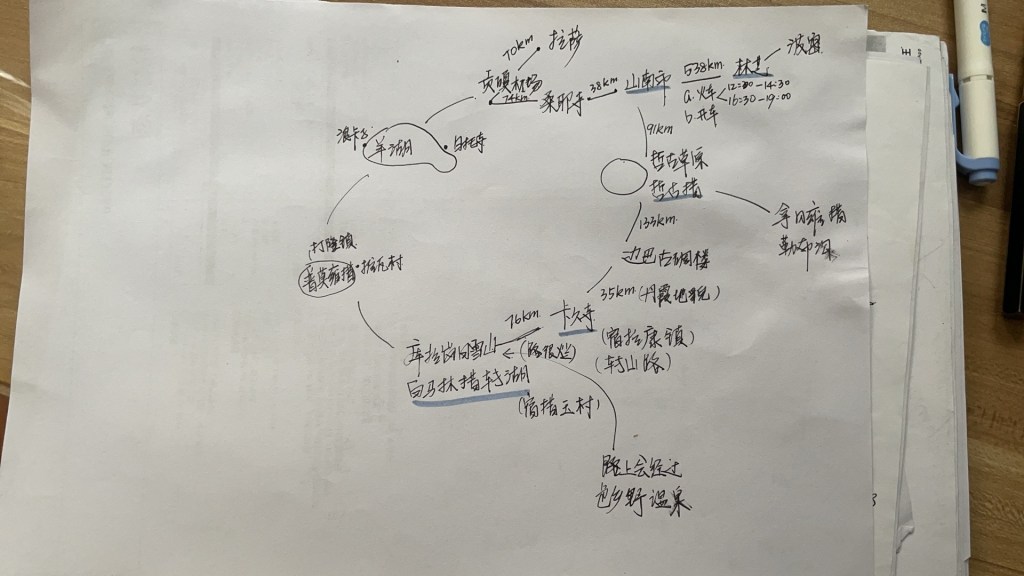 70km
拉萨
贡嘎机场
74km
桑耶寺
38km
山南市
538km
林芝
波密
a.火车
12:30-14:30
16:30-19:00
b.开车
浪卡子
羊湖
白托寺
91km
哲古草原
哲古措
拿日雍措
勒布沟
133km
边巴古碉楼
35km(丹霞地貌)
打隆镇
普莫雍措
推瓦村
76km
卡久寺
(宿拉康镇)
(转山路)
库拉岗日雪山
(路很烂)
白马林措转湖
(宿措玉村)
路上会经过
色乡野温泉